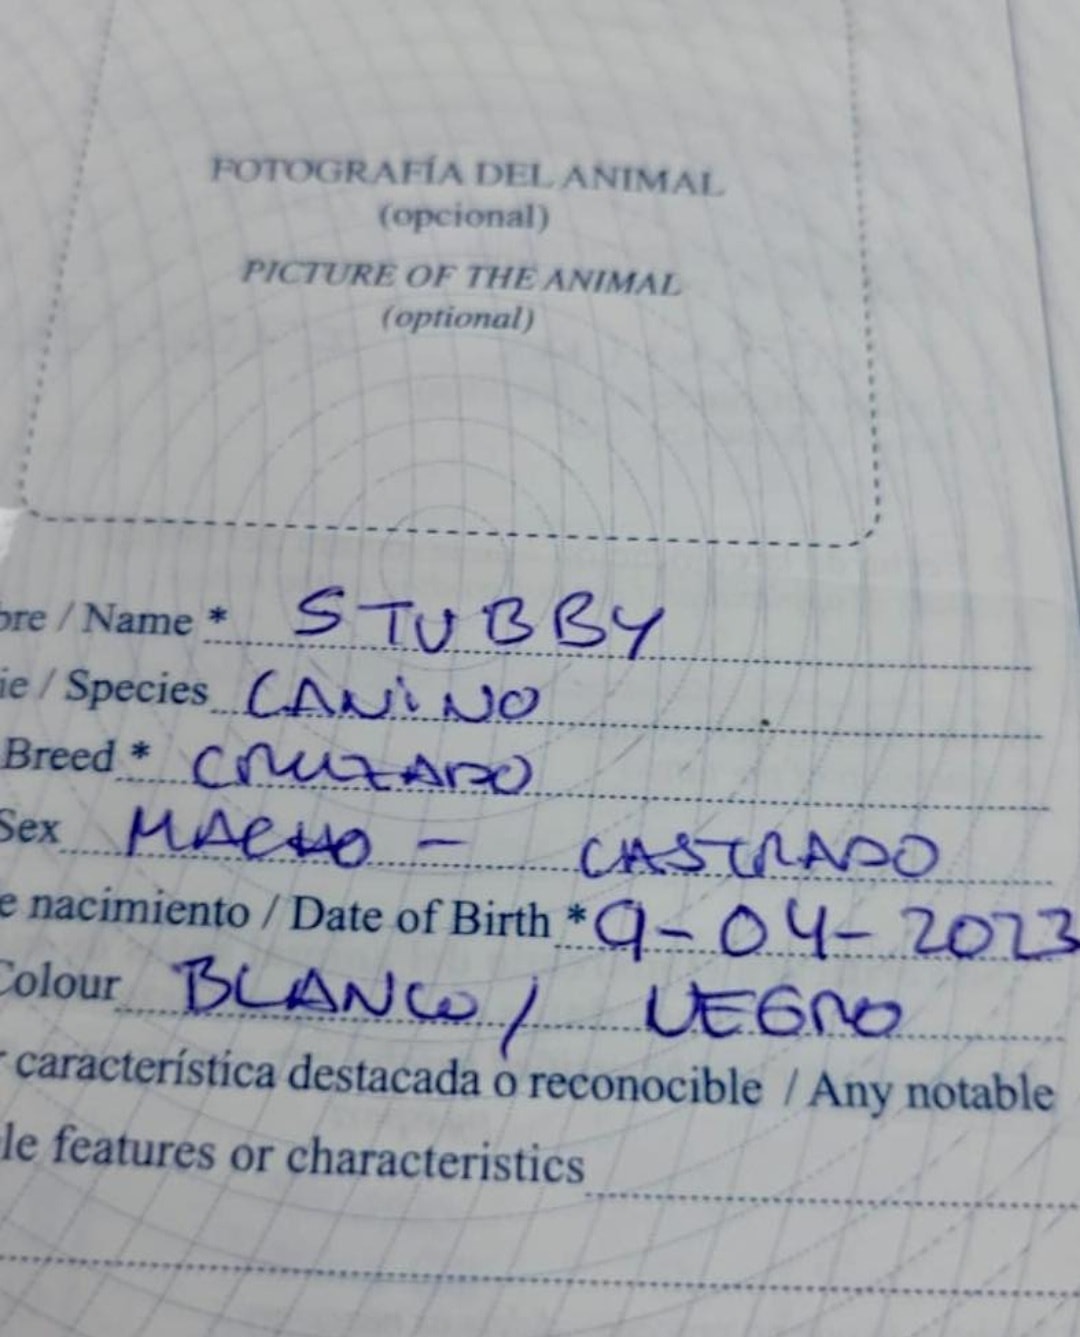 FOTOGRAFÍA DEL ANIMAL
(opcional)
PICTURE OF THE ANIMAL
(optional)
bre / Name * STUBBY
ie / Species CANiNO
Breed * CRUZADO
Sex MACHO - CASTRADO
e nacimiento / Date of Birth * 9-04-2023
Colour BLANCO / NEGRO
r característica destacada o reconocible / Any notable
le features or characteristics